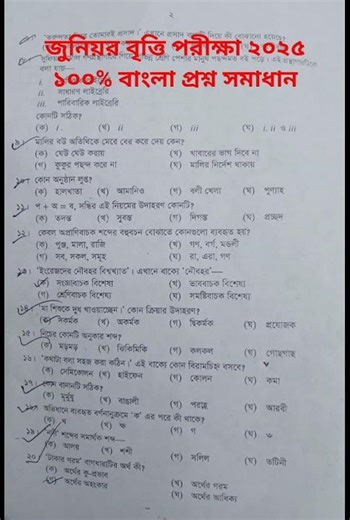 ২
জুনিয়র বৃত্তি পরীক্ষা ২০২৫
১০০% বাংলা প্রশ্ন সমাধান
বলা হয়—
i.
ii. সাধারণ লাইব্রেরি
iii. পারিবারিক লাইব্রেরি
কোনটি সঠিক?
(ক) i. (খ) ii (গ) iii (ঘ) i. ii ও iii
মালির বউ অতিথিকে মেরে বের করে দেয় কেন?
(ক) ঘেউ ঘেউ করায় (খ) খাবারের ভাগ দিবে না
(গ) কুকুর পছন্দ করে না (ঘ) মালির নির্দেশ থাকায়
১০ কোন অনুষ্ঠান লুপ্ত?
(ক) হালখাতা (খ) আমানিও (গ) বলী খেলা (ঘ) পুণ্যাহ
১১. প + অ = ব, সন্ধির এই নিয়মের উদাহরণ কোনটি?
(ক) তদন্ত (খ) সুবন্ত (গ) দিগন্ত (ঘ) প্রচ্ছদ
১২। কেবল অপ্রাণিবাচক শব্দের বহুবচন বোঝাতে কোনগুলো ব্যবহৃত হয়?
(ক) পুঞ্জ, মালা, রাজি (খ) গণ, বর্গ, মণ্ডলী
(গ) সব, সকল, সমূহ (ঘ) রা, এরা, গণ
১৩। 'ইংরেজদের নৌবহর বিশ্বখ্যাত'। এখানে বাক্যে 'নৌবহর'—
(ক) সংজ্ঞাবাচক বিশেষ্য (খ) ভাববাচক বিশেষ্য
(গ) শ্রেণিবাচক বিশেষ্য (ঘ) সমষ্টিবাচক বিশেষ্য
১৪। 'মা শিশুকে দুধ খাওয়াচ্ছেন।' কোন ক্রিয়ার উদাহরণ?
(ক) সকর্মক (খ) অকর্মক (গ) দ্বিকর্মক (ঘ) প্রযোজক
১৫। নিচের কোনটি অনুকার শব্দ?
(ক) মড়মড় (খ) ঝিকিমিকি (গ) কলকল (ঘ) গোছগাছ
১৬। 'কথাটা বলা সহজ করা কঠিন।' এই বাক্যে কোন বিরামচিহ্ন বসবে?
(ক) সেমিকোলন (খ) হাইফেন (গ) কোলন (ঘ) কমা
১৭। কোন বানানটি সঠিক?
(ক) মুমূর্ষু (খ) বাঙালী (গ) (ঘ) আরবী
অভিধানে ব্যবহৃত বর্ণানুক্রমে 'ক' এর পরে কী থাকে?
(ক) খ (খ) ক্ষ (গ) গ (ঘ)
১৯। শব্দের সমার্থক শব্দ—
(ক) আলয় (খ) শশী (গ) সলিল (ঘ) তটিনী
২০ 'টাকার গরম' বাগধারাটির অর্থ কী?
(ক) অর্থের কু-প্রভাব (খ) অর্থের গরম
(গ) অর্থের অহংকার (ঘ) অর্থের আধিক্য